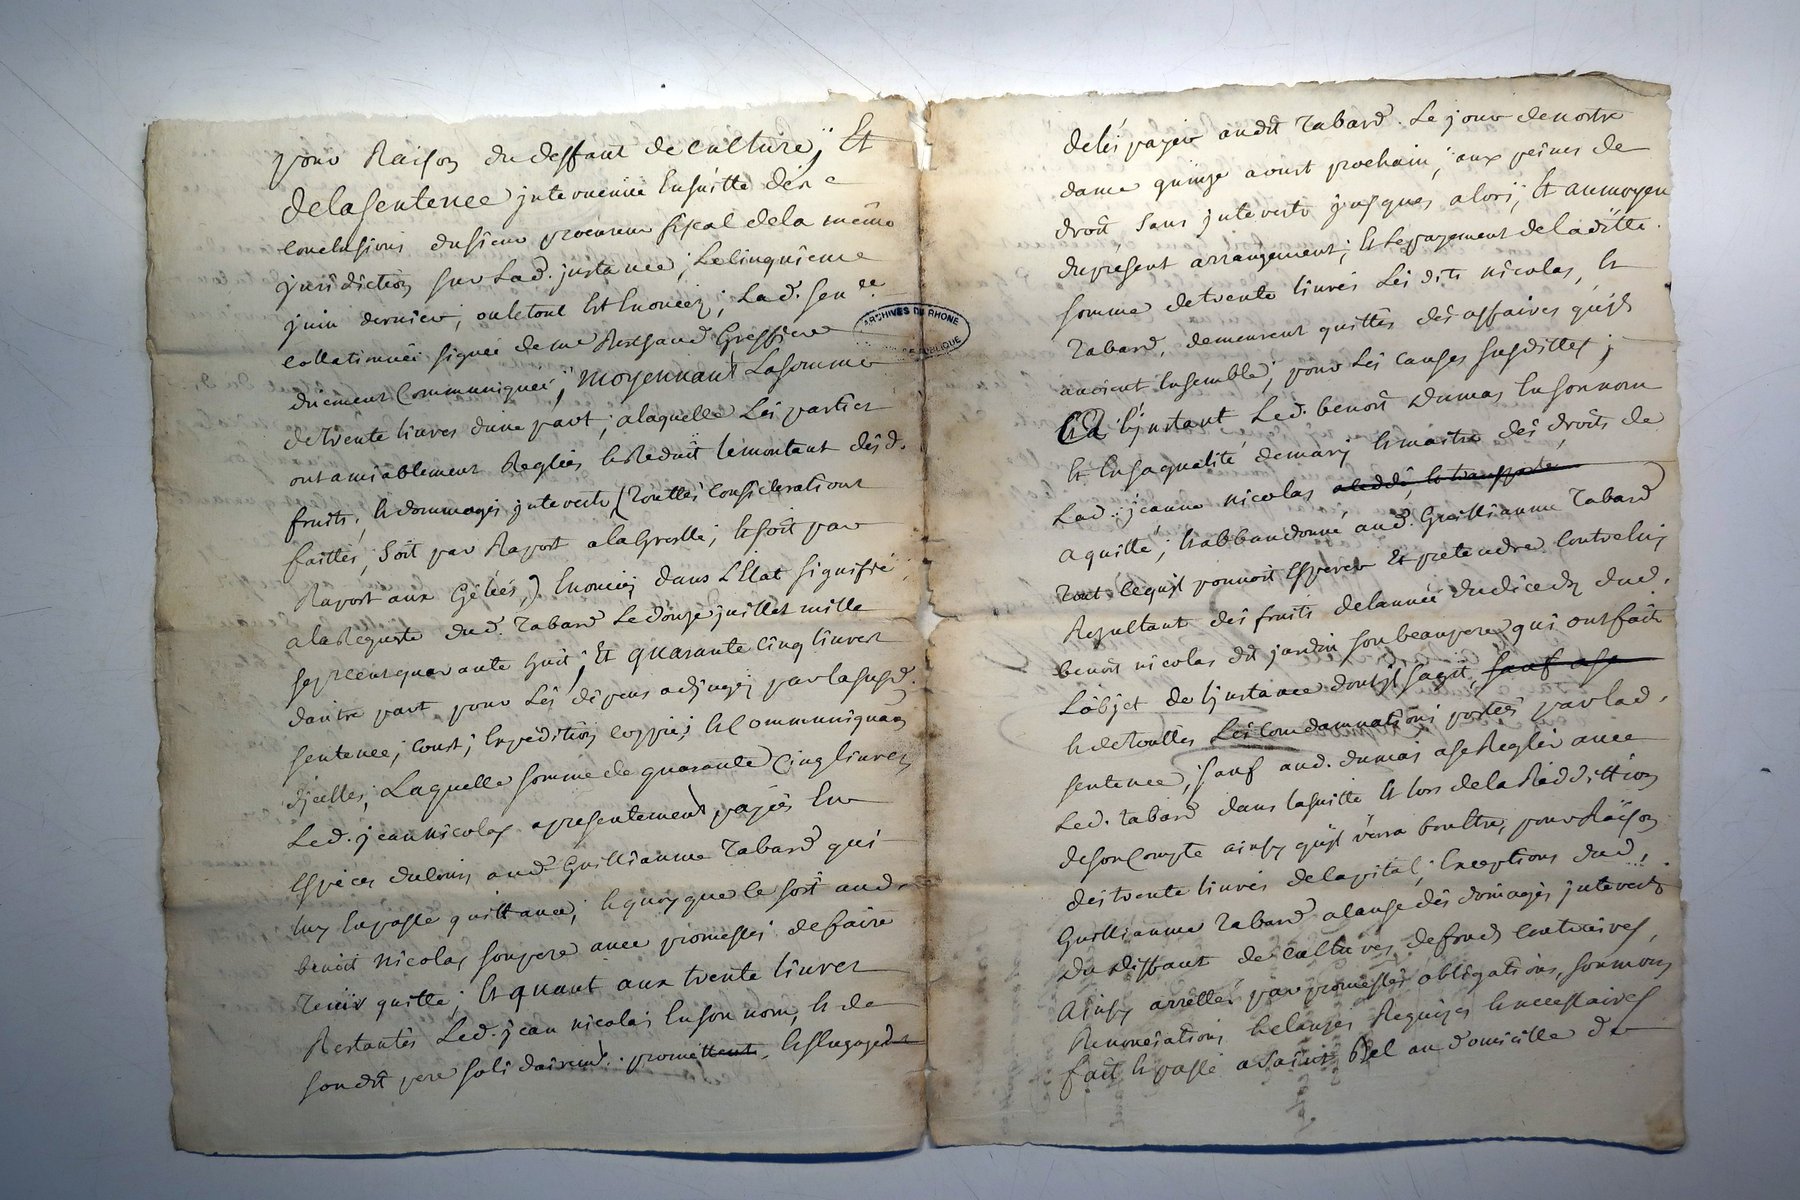 pour Raison du deffaut de culture; Et
de la sentence jntervenüe Ensuitte des
conclusions du sieur procureur fiscal de la même
jurisdiction sur Lad. jnstance; Le cinquieme
juin dernier, ou le tout Est Enoncez; Lad. sen.ce
collationnée signée de me greffier
düement Communiquée; Moyennant La somme
de trente livres d'une part; a laquelle Les parties
ont amiablement Reglées et Reduit le montant desd.
fruits, et dommages jnterests, (Touttes Considerations
faittes, soit par Raport a la Greslle; et soit par
Raport aux Gelées,) Enoncez dans L'Etat signiffié
a la Requeste dud. Tabard Le douze juillet mille
sept cent quarante huit; Et quarante cinq livres
dautre part pour Les depens adjugez par la susd.
sentence; Coust; Expedition coppie; et Communiquaõn
djcelles; Laquelle somme de quarante Cinq livres
Led. jean nicolas a presentement payée En
Especes du Cours aud. Guilliaume Tabard qui
luy En passe quittance; et quoy que ce soit aud.
benoit Nicolas son pere avec promesses de faire
Tenir quitte; Et quant aux trente livres
Restantes Led. jean nicolas En son nom, et de
son dit pere solidairemt. promettent et s'Engagent
de les payer audit Tabard. Le jour de nostre
dame quinze aoust prochain; aux peines de
droit, sans jnterests jusques alors; Et au moyen
du present arrangement; Et le payement de la ditte
somme de trente livres Les dits nicolas, Et
Tabard, demeurent quittes des affaires qu'ils
avoient Ensemble, pour Les causes susdittes;
Et a L'jnstant Led. benoit Dumas En son nom
Et En sa qualité de mary Et maitre des droits de
Lad. jeanne nicolas a ceddé, et transporté
a quitté; et abbandonné aud. Guilliaume Tabard
Tout ce qu'jl pouvoit Esperer Et pretendre Contre luy
Resultant des fruits de l'année du dicedz dud.
benoit nicolas dit jardin son beaupere qui ont fait
L'objet de L'jnstance dont jl sagit, sauf a se
et de Touttes Les Condamnations portées par lad.
sentence, sauf aud. dumas a se Regler avec
Led. Tabard dans la suitte Et lors de la Reddittion
de son Compte ainsy qu'jl verra bon Etre, pour Raison
des trente livres de Capital; Exceptions dud.
Guilliaume Tabard a cause des domages jnterests
du deffaut de cultures, deffences Contraires,
Ainsy arrettés par promesses obligations, soumons
Renonciations et clauses Requizes et necessaires
fait et passé a Saint Bel au domicille de